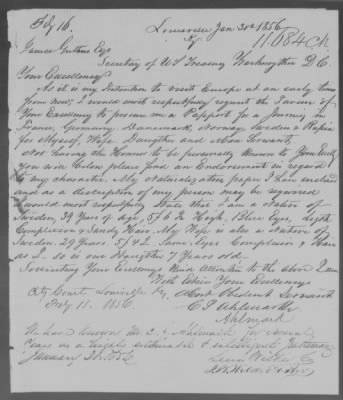 Fby 16.
Louisville Jan 30th 1856
Ky
11,684 Ch
James Guthrie Esqr
Secretary of US Treasury Washington D.C.
Your Excellency
As it is my Intention to visit Europe at an early time
from now, I would most respectfully request the favour of
Your Excellency to procure me a Passport for a Journey in
France, Germany, Danemark, Norway Sweden & Rusia
for Myself, Wife Daughter and Man Servant.
Not having the Honour to be personaly known to Your Excell.
You will below please find an Endorsement in regard
to my character. My Naturalization paper I have enclosed
and as a discription of my person may be required
I would most respectfully State that I am a Native of
Sweden, 39 Years of age, 5/6 In High, Blue Eyes, Light
Complexion & Sandy Hair. My Wife is also a Native of
Sweden. 29 Years. 5/4 Same Eyes Complexion & Hair
as I. so is our Daughter 7 Years old.
Soliciting Your Excellencys Kind Attention to the above I am
With Esteem Your Excellencys
City Court Louisville Ky.
Most Obedient Servant
Feby 11. 1856.
C. J.
We have known Mr C. J. for several
years as a highly estimable & intelligent gentleman
January 30. 1856
J. B. Wilder & Bro